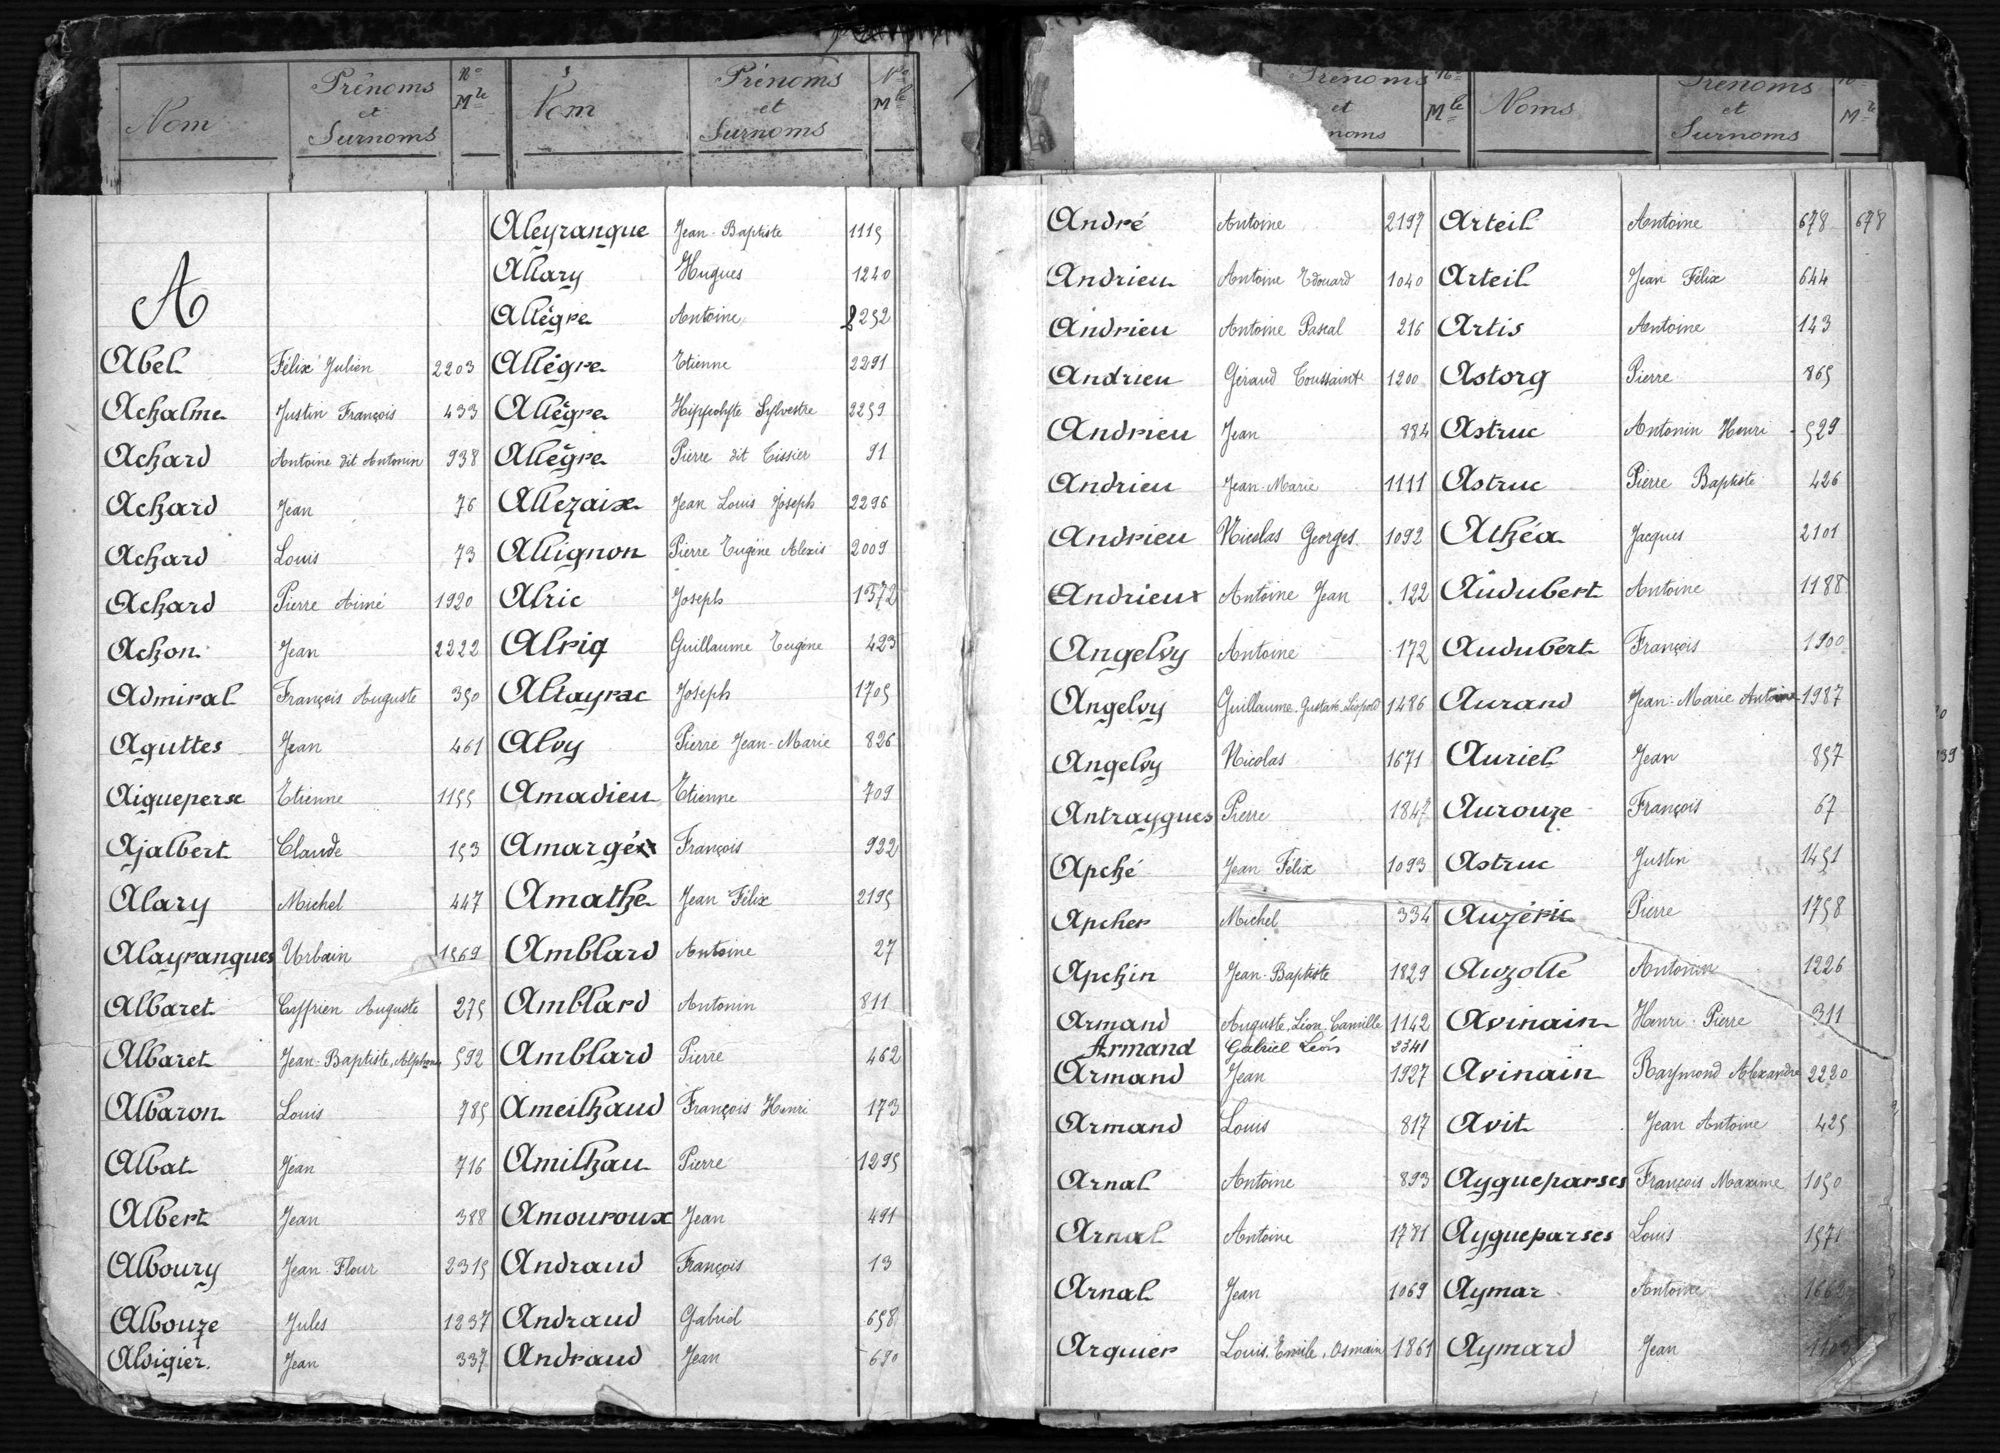 Nom Prénoms et Surnoms No Mle Nom Prénoms et Surnoms No Mle
A
Abel Félix Julien 2203
Achalme Justin François 433
Achard Antoine dit Antonin 938
Achard Jean 76
Achard Louis 73
Achard Pierre Aimé 1920
Achon Jean 2222
Admiral François Auguste 350
Aguttes Jean 461
Aigueperse Etienne 1155
Ajalbert Claude 153
Alary Michel 447
Alayrangues Urbain 1569
Albaret Cyprien Auguste 275
Albaret Jean-Baptiste, Alphonse 592
Albaron Louis 785
Albat Jean 716
Albert Jean 388
Alboury Jean-Flour 2315
Albouze Jules 1237
Aldigier. Jean 337
Aleyrangue Jean-Baptiste 1115
Allary Hugues 1240
Allègre Antoine 2252
Allègre Etienne 2291
Allègre Hippolyte Sylvestre 2259
Allègre Pierre dit Tissier 91
Allezaix Jean Louis Joseph 2296
Allignon Pierre Eugène Alexis 2009
Alric Joseph 1372
Alriq Guillaume Eugène 423
Altayrac Joseph 1705
Alvy Pierre Jean-Marie 826
Amadieu Etienne 709
Amargé François 922
Amathe Jean Félix 2195
Amblard Antoine 27
Amblard Antonin 811
Amblard Pierre 462
Ameilhaud François Henri 173
Amilhau Pierre 1295
Amouroux Jean 491
Andraud François 13
Andraud Gabriel 658
Andraud Jean 690
Prénoms et noms No Mle Noms Prénoms et Surnoms No Mle
André Antoine 2197
Andrieu Antoine Edouard 1040
Andrieu Antoine Pascal 216
Andrieu Géraud Toussaint 1200
Andrieu Jean 884
Andrieu Jean-Marie 1111
Andrieu Nicolas Georges 1092
Andrieux Antoine Jean 122
Angelvy Antoine 172
Angelvy Guillaume, Gustave, Léopold 1486
Angelvy Nicolas 1671
Antraygues Pierre 1847
Apché Jean Félix 1093
Apcher Michel 334
Apchin Jean-Baptiste 1829
Armand Auguste, Léon, Camille 1142
Armand Gabriel Léon 2341
Armand Jean 1927
Armand Louis 817
Arnal Antoine 893
Arnal Antoine 1781
Arnal Jean 1069
Arquier Louis, Emile, Osmain 1861
Arteil Antoine 678 678
Arteil Jean Félix 644
Artis Antoine 143
Astorg Pierre 865
Astruc Antonin Henri 529
Astruc Pierre Baptiste 426
Athéa Jacques 2101
Audubert Antoine 1188
Audubert François 1900
Aurand Jean-Marie Antoine 1987
Auriel Jean 857
Aurouze François 67
Astruc Justin 1451
Auzéric Pierre 1758
Auzolle Antonin 1226
Avinain Henri-Pierre 311
Avinain Raymond Alexandre 2220
Avit Jean Antoine 425
Aygueparses François Maxime 1050
Aygueparses Louis 1571
Aymar Antoine 1662
Aymard Jean